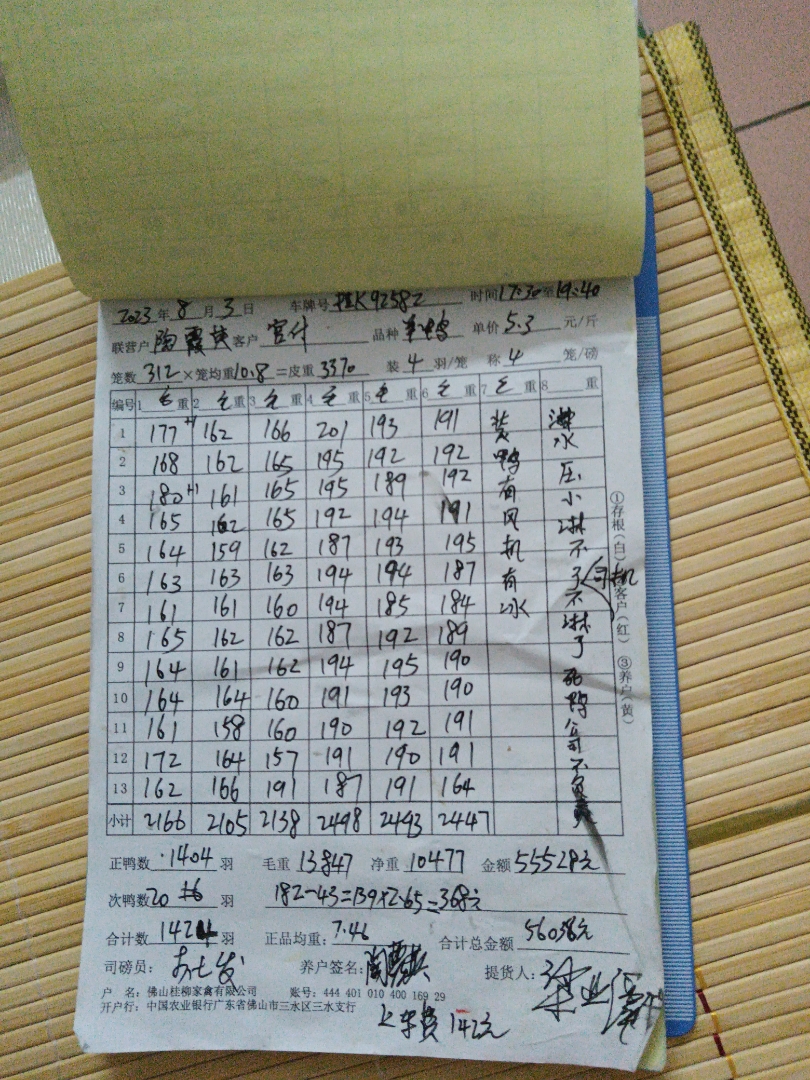 2023年8月3日 车牌号 桂K92582 时间17:30至19:40
联营户 陶霞 客户 官什 品种 单价5.3元/斤
笼数312×笼均重10.8=皮重3370 装4羽/笼 称4笼/磅
编号 1毛重 2毛重 3毛重 4毛重 5毛重 6毛重 7毛重 8重
1 177+1 162 166 201 193 191 装 淋水
2 168 162 165 195 192 192 鸭 压
3 180+1 161 165 195 189 192 有 小
4 165 162 165 192 194 191 风 淋
5 164 159 162 187 193 195 机 不
6 163 163 163 194 194 187 有 了 司机
7 161 161 160 194 185 184 冰 不
8 165 162 162 187 192 189 淋了
9 164 161 162 194 195 190 死
10 164 164 160 191 193 190 鸭
11 161 158 160 190 192 191 公司
12 172 164 157 191 190 191 不
13 162 166 191 187 191 164 负
小计 2166 2105 2138 2498 2493 2447 责
①存根(白) ②客户(红) ③养户(黄)
正鸭数 1404羽 毛重 13847 净重 10477 金额 55528元
次鸭数20羽 182-43=139×2.65=368元
合计数 1424羽 正品均重:7.46 合计总金额 56038元
司磅员: 养户签名: 提货人:
户 名:佛山桂柳家禽有限公司 账号:444 401 010 400 169 29
开户行:中国农业银行广东省佛山市三水区三水支行
上车费 142元